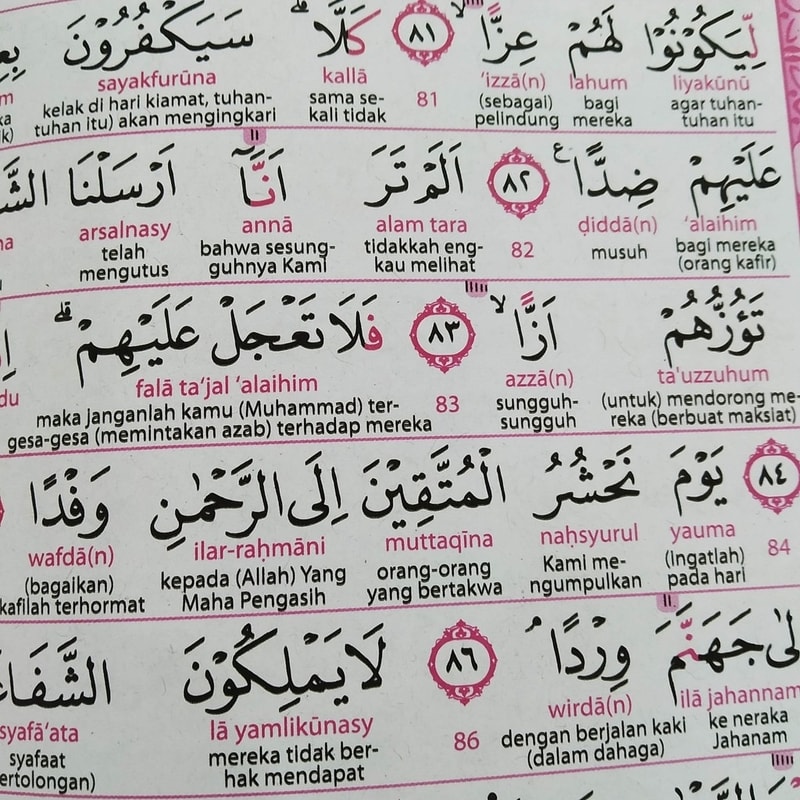 لِّيَكُوْنُوْا لَهُمْ عِزًّا ۙ ٨١ كَلَّا ۗ سَيَكْفُرُوْنَ
liyakūnū lahum ‘izzā(n) 81 kallā sayakfurūna
agar tuhan-tuhan itu bagi mereka (sebagai) pelindung sama sekali tidak kelak di hari kiamat, tuhan-tuhan itu) akan mengingkari
عَلَيْهِمْ ضِدًّا ࣖ ٨٢ اَلَمْ تَرَ اَنَّآ اَرْسَلْنَا
‘alaihim ḍiddā(n) 82 alam tara annā arsalnasy
bagi mereka (orang kafir) musuh tidakkah engkau melihat bahwa sesungguhnya Kami telah mengutus
تَؤُزُّهُمْ اَزًّا ۙ ٨٣ فَلَا تَعْجَلْ عَلَيْهِمْ ۗ
ta'uzzuhum azzā(n) 83 falā ta‘jal ‘alaihim
(untuk) mendorong mereka (berbuat maksiat) sungguh-sungguh maka janganlah kamu (Muhammad) tergesa-gesa (memintakan azab) terhadap mereka
٨٤ يَوْمَ نَحْشُرُ الْمُتَّقِيْنَ اِلَى الرَّحْمٰنِ وَفْدًا
84 yauma naḥsyurul muttaqīna ilar-raḥmāni wafdā(n)
(Ingatlah) pada hari Kami mengumpulkan orang-orang yang bertakwa kepada (Allah) Yang Maha Pengasih (bagaikan) kafilah terhormat
جَهَنَّمَ وِرْدًا ۘ ٨٦ لَا يَمْلِكُوْنَ
ilā jahannam wirdā(n) 86 lā yamlikūnasy syafā‘ata
ke neraka Jahanam dengan berjalan kaki (dalam dahaga) mereka tidak berhak mendapat syafaat